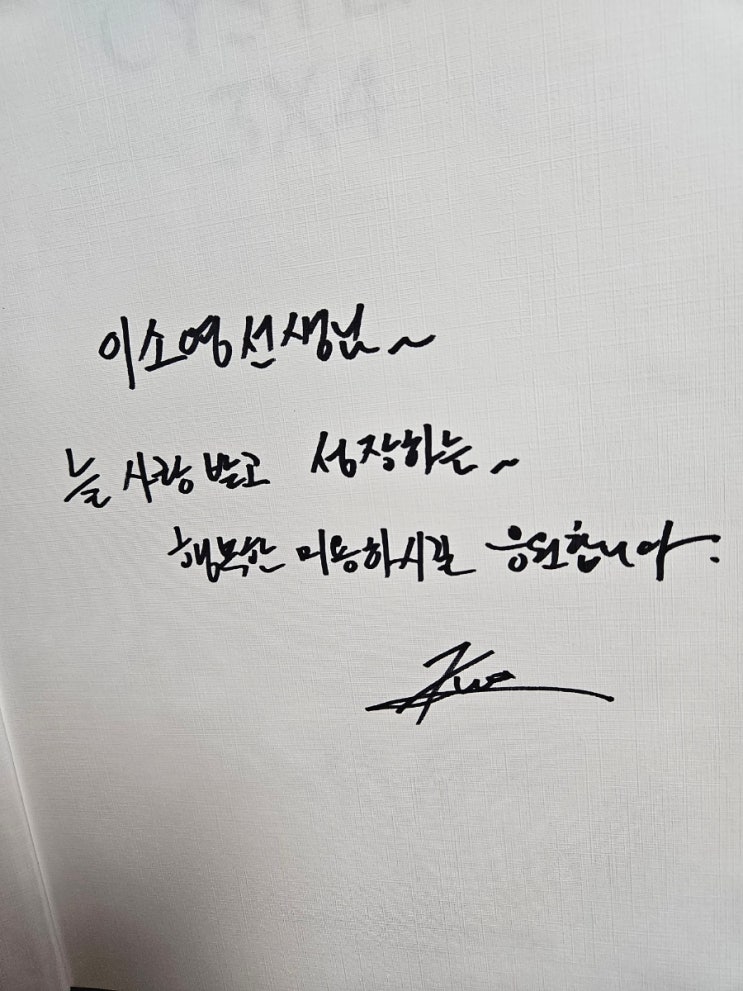 이소영선생님~
늘 사랑받고 성장하는~
행복한 미용하시길 응원합니다.